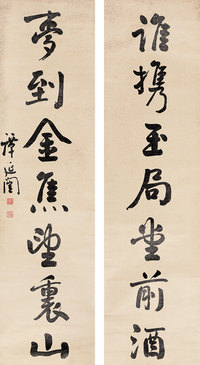 誰携玉局堂前酒
夢到金焦望裏山
譚延闓